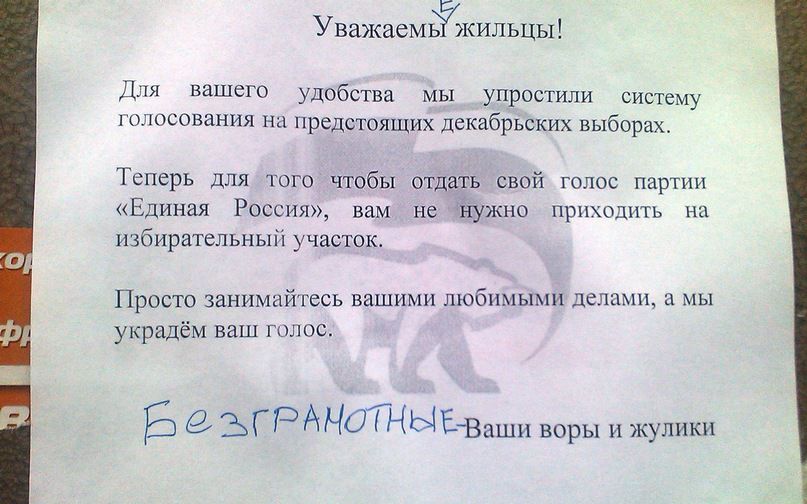 Уважаемы жильцы!
е
Для вашего удобства мы упростили систему
голосования на предстоящих декабрьских выборах.
Теперь для того чтобы отдать свой голос партии
«Единая Россия», вам не нужно приходить на
избирательный участок.
Просто занимайтесь вашими любимыми делами, а мы
украдём ваш голос.
Безграмотные-Ваши воры и жулики